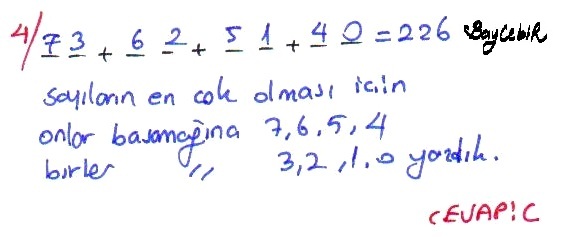 4/ 73 + 62 + 51 + 40 = 226 BayCebir
sayıların en çok olması için
onlar basamağına 7,6,5,4
birler " 3,2,1,0 yazdık.
CEVAP: C